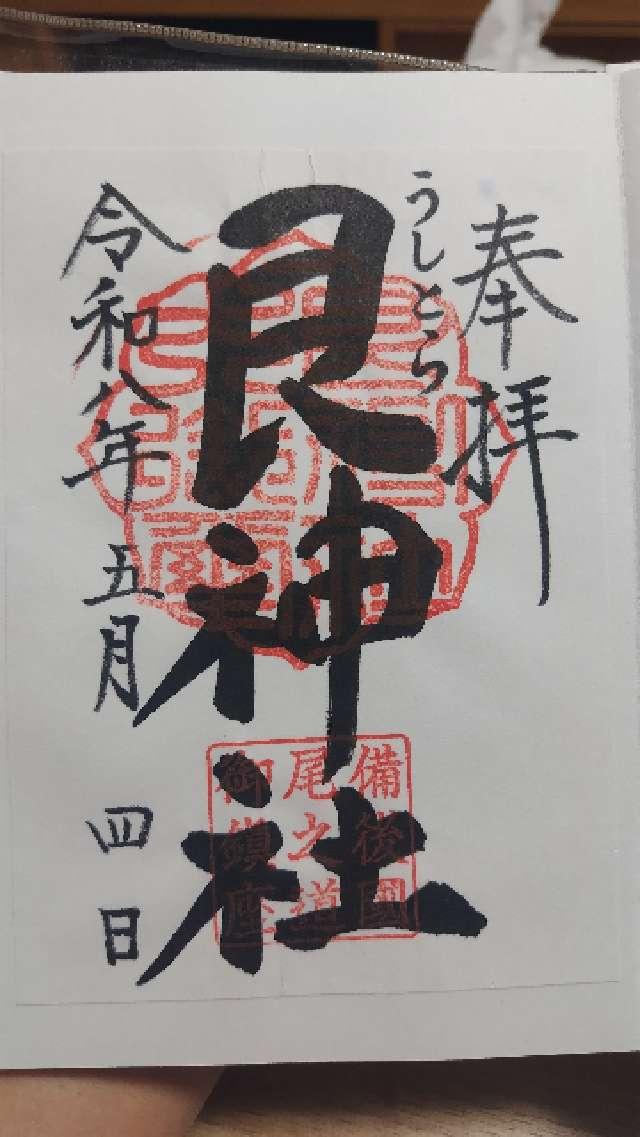 奉拝
うしとら
艮神社
令和八年五月四日
備後國
尾之道
御鎮座